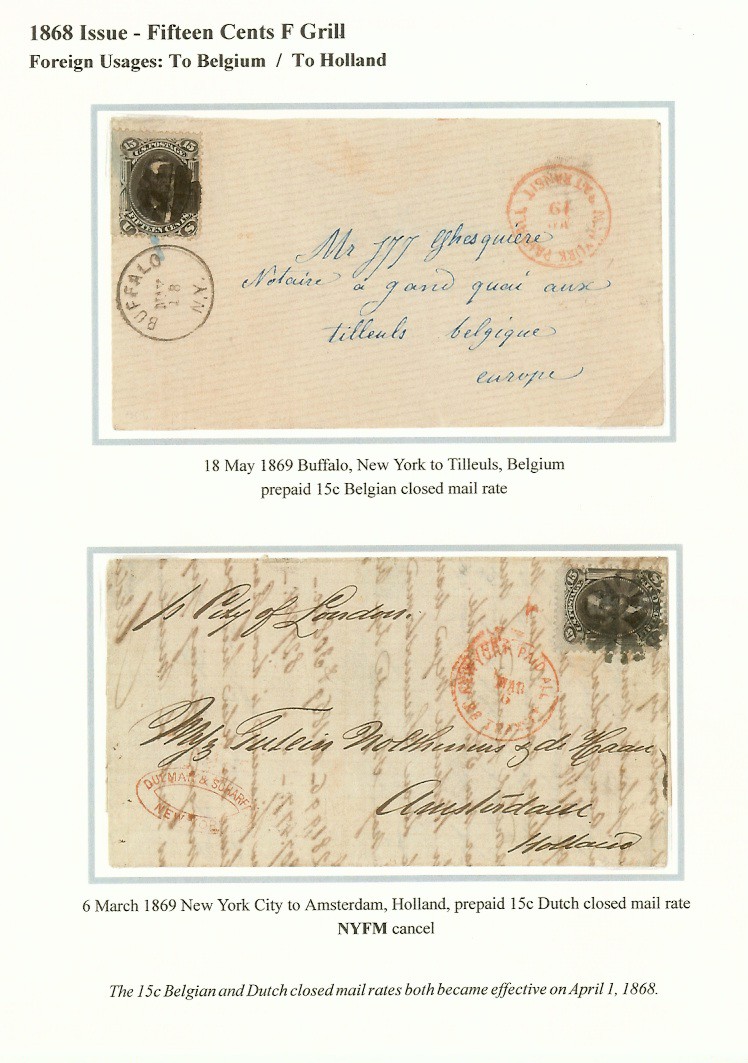 1868 Issue - Fifteen Cents F Grill
Foreign Usages: To Belgium / To Holland
15 U.S. POSTAGE 15
FIFTEEN CENTS
U S
BUFFALO N.Y.
MAY
18
NEW YORK PAID TRANSIT
19
Mr JJJ Ghesquière
Notaire à gand quai aux
tilleuls belgique
europe
18 May 1869 Buffalo, New York to Tilleuls, Belgium
prepaid 15c Belgian closed mail rate
15
U.S. POSTAGE
pr City of London.
NEW YORK PAID ALL
MAR
6
de Haan
Amsterdam
Holland
& SCHARF
NEW YORK
6 March 1869 New York City to Amsterdam, Holland, prepaid 15c Dutch closed mail rate
NYFM cancel
The 15c Belgian and Dutch closed mail rates both became effective on April 1, 1868.